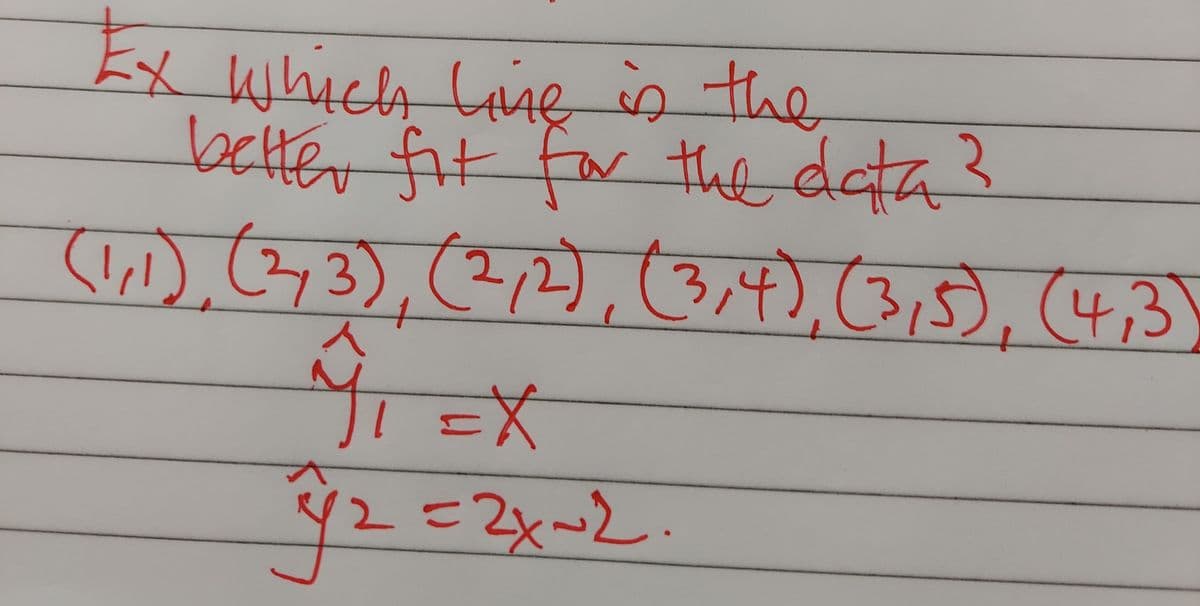 Ex Which line is the
better fit for the data?
(1,1), (2,3), (2,2), (3,4), (3,5), (4,3)
ŷ1 = x
ŷ2 = 2x-2.